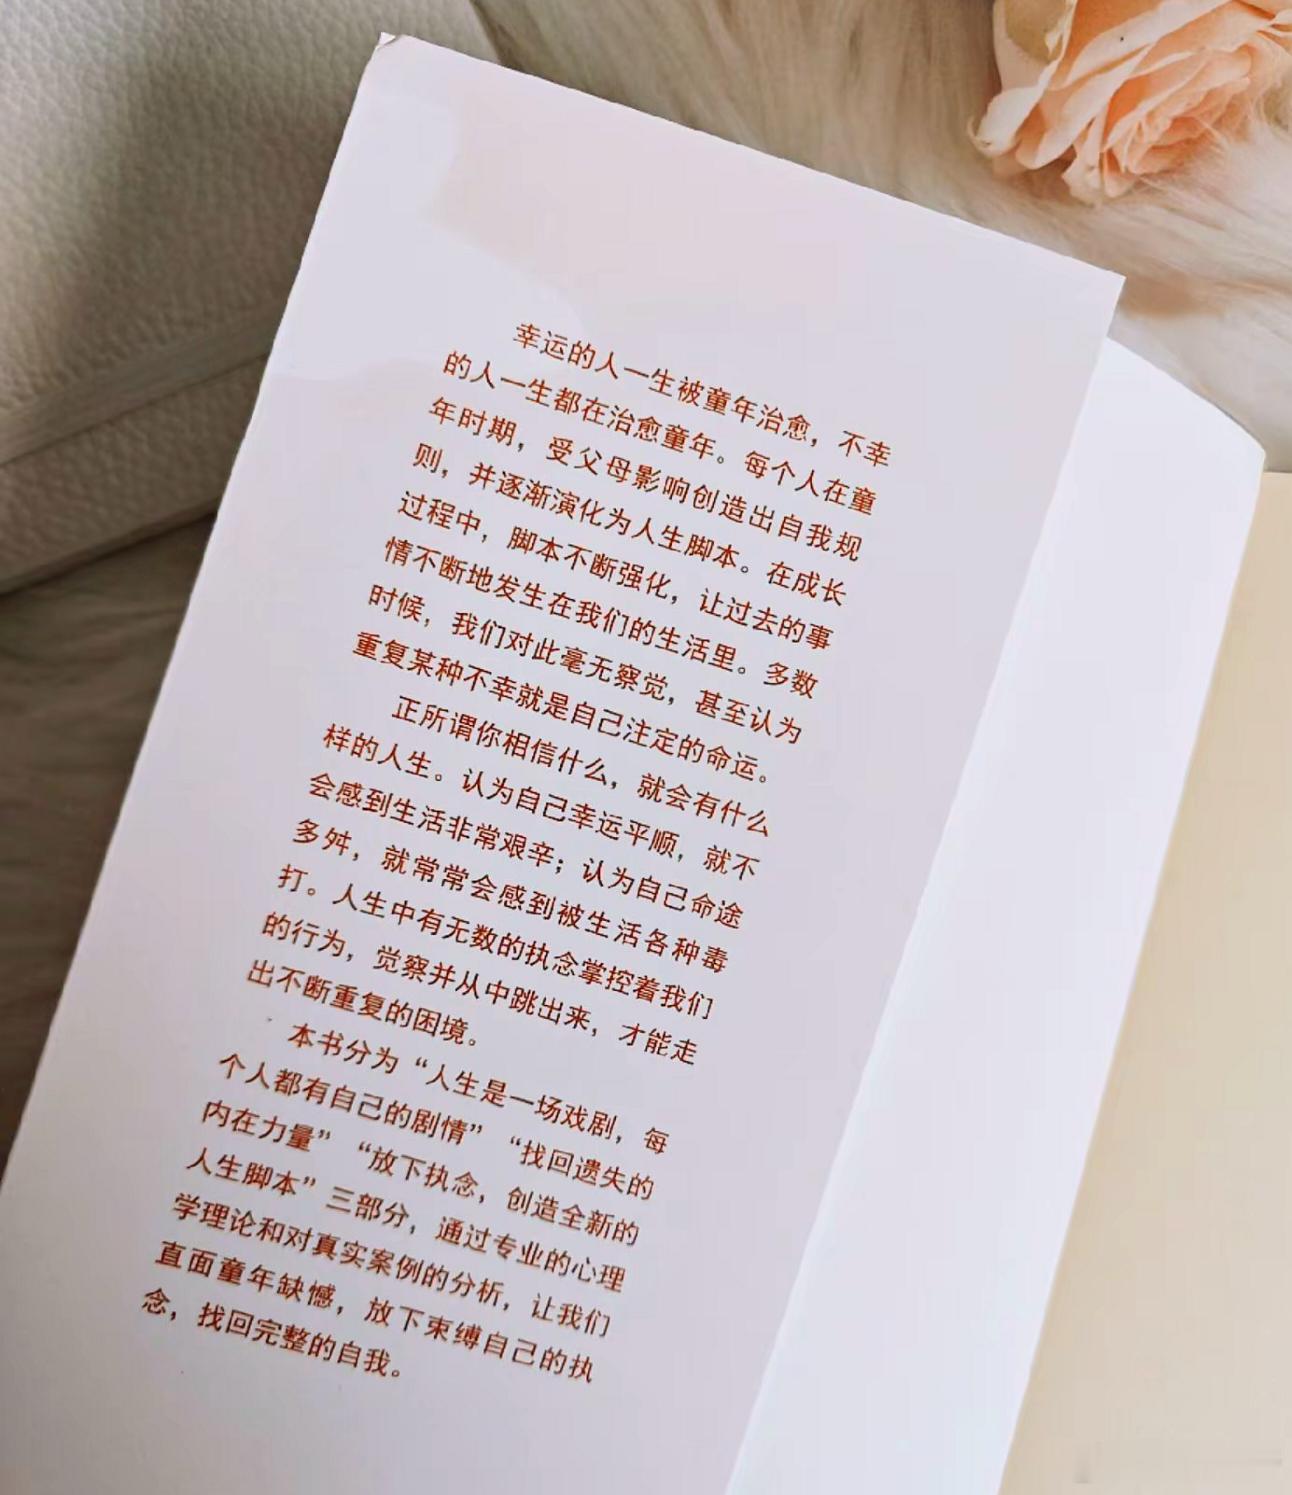 幸运的人一生被童年治愈，不幸
的人一生都在治愈童年。每个人在童
年时期，受父母影响创造出自我规
则，并逐渐演化为人生脚本。在成长
过程中，脚本不断强化，让过去的事
情不断地发生在我们的生活里。多数
时候，我们对此毫无察觉，甚至认为
重复某种不幸就是自己注定的命运。
正所谓你相信什么，就会有什么
样的人生。认为自己幸运平顺，就不
会感到生活非常艰辛；认为自己命途
多舛，就常常会感到被生活各种毒
打。人生中有无数的执念掌控着我们
的行为，觉察并从中跳出来，才能走
出不断重复的困境。
本书分为“人生是一场戏剧，每
个人都有自己的剧情”“找回遗失的
内在力量”“放下执念，创造全新的
人生脚本”三部分，通过专业的心理
学理论和对真实案例的分析，让我们
直面童年缺憾，放下束缚自己的执
念，找回完整的自我。